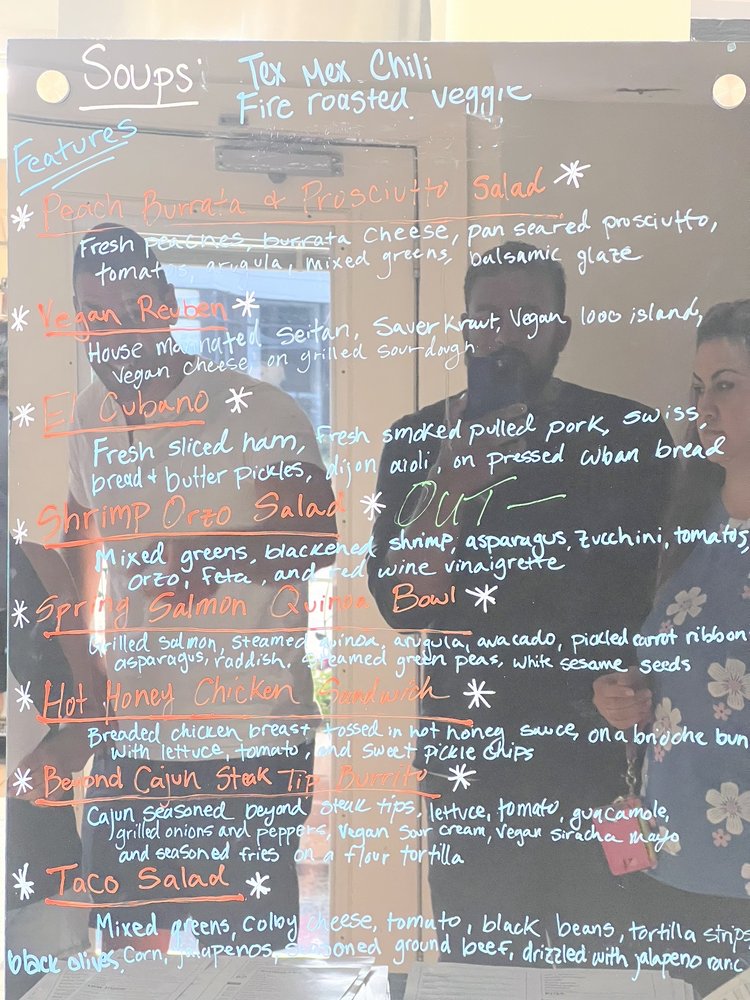 Soups: Tex Mex Chili
Fire roasted veggie
Features
* Peach Burrata & Prosciutto Salad *
Fresh peaches, burrata cheese, pan seared prosciutto,
tomatos, arugula, mixed greens, balsamic glaze
* Vegan Reuben *
House marinated seitan, Sauerkraut, Vegan 1000 island,
vegan cheese, on grilled sourdough
* El Cubano *
Fresh sliced ham, fresh smoked pulled pork, swiss,
bread & butter pickles, dijon aioli, on pressed cuban bread
* Shrimp Orzo Salad * OUT—
Mixed greens, blackened shrimp, asparagus, zucchini, tomatos,
orzo, feta, and red wine vinaigrette
* Spring Salmon Quinoa Bowl *
Grilled salmon, steamed quinoa, arugula, avacado, pickled carrot ribbon
asparagus, raddish, steamed green peas, white sesame seeds
* Hot Honey Chicken Sandwich *
Breaded chicken breast tossed in hot honey sauce, on a brioche bun
with lettuce, tomato, and sweet pickle chips
* Beyond Cajun Steak Tip Burrito *
Cajun seasoned beyond steak tips, lettuce, tomato, guacamole,
grilled onions and peppers, vegan sour cream, vegan siracha mayo
and seasoned fries on a flour tortilla
* Taco Salad *
Mixed greens, colby cheese, tomato, black beans, tortilla strips
black olives, corn, jalapenos, seasoned ground beef, drizzled with jalapeno ranc